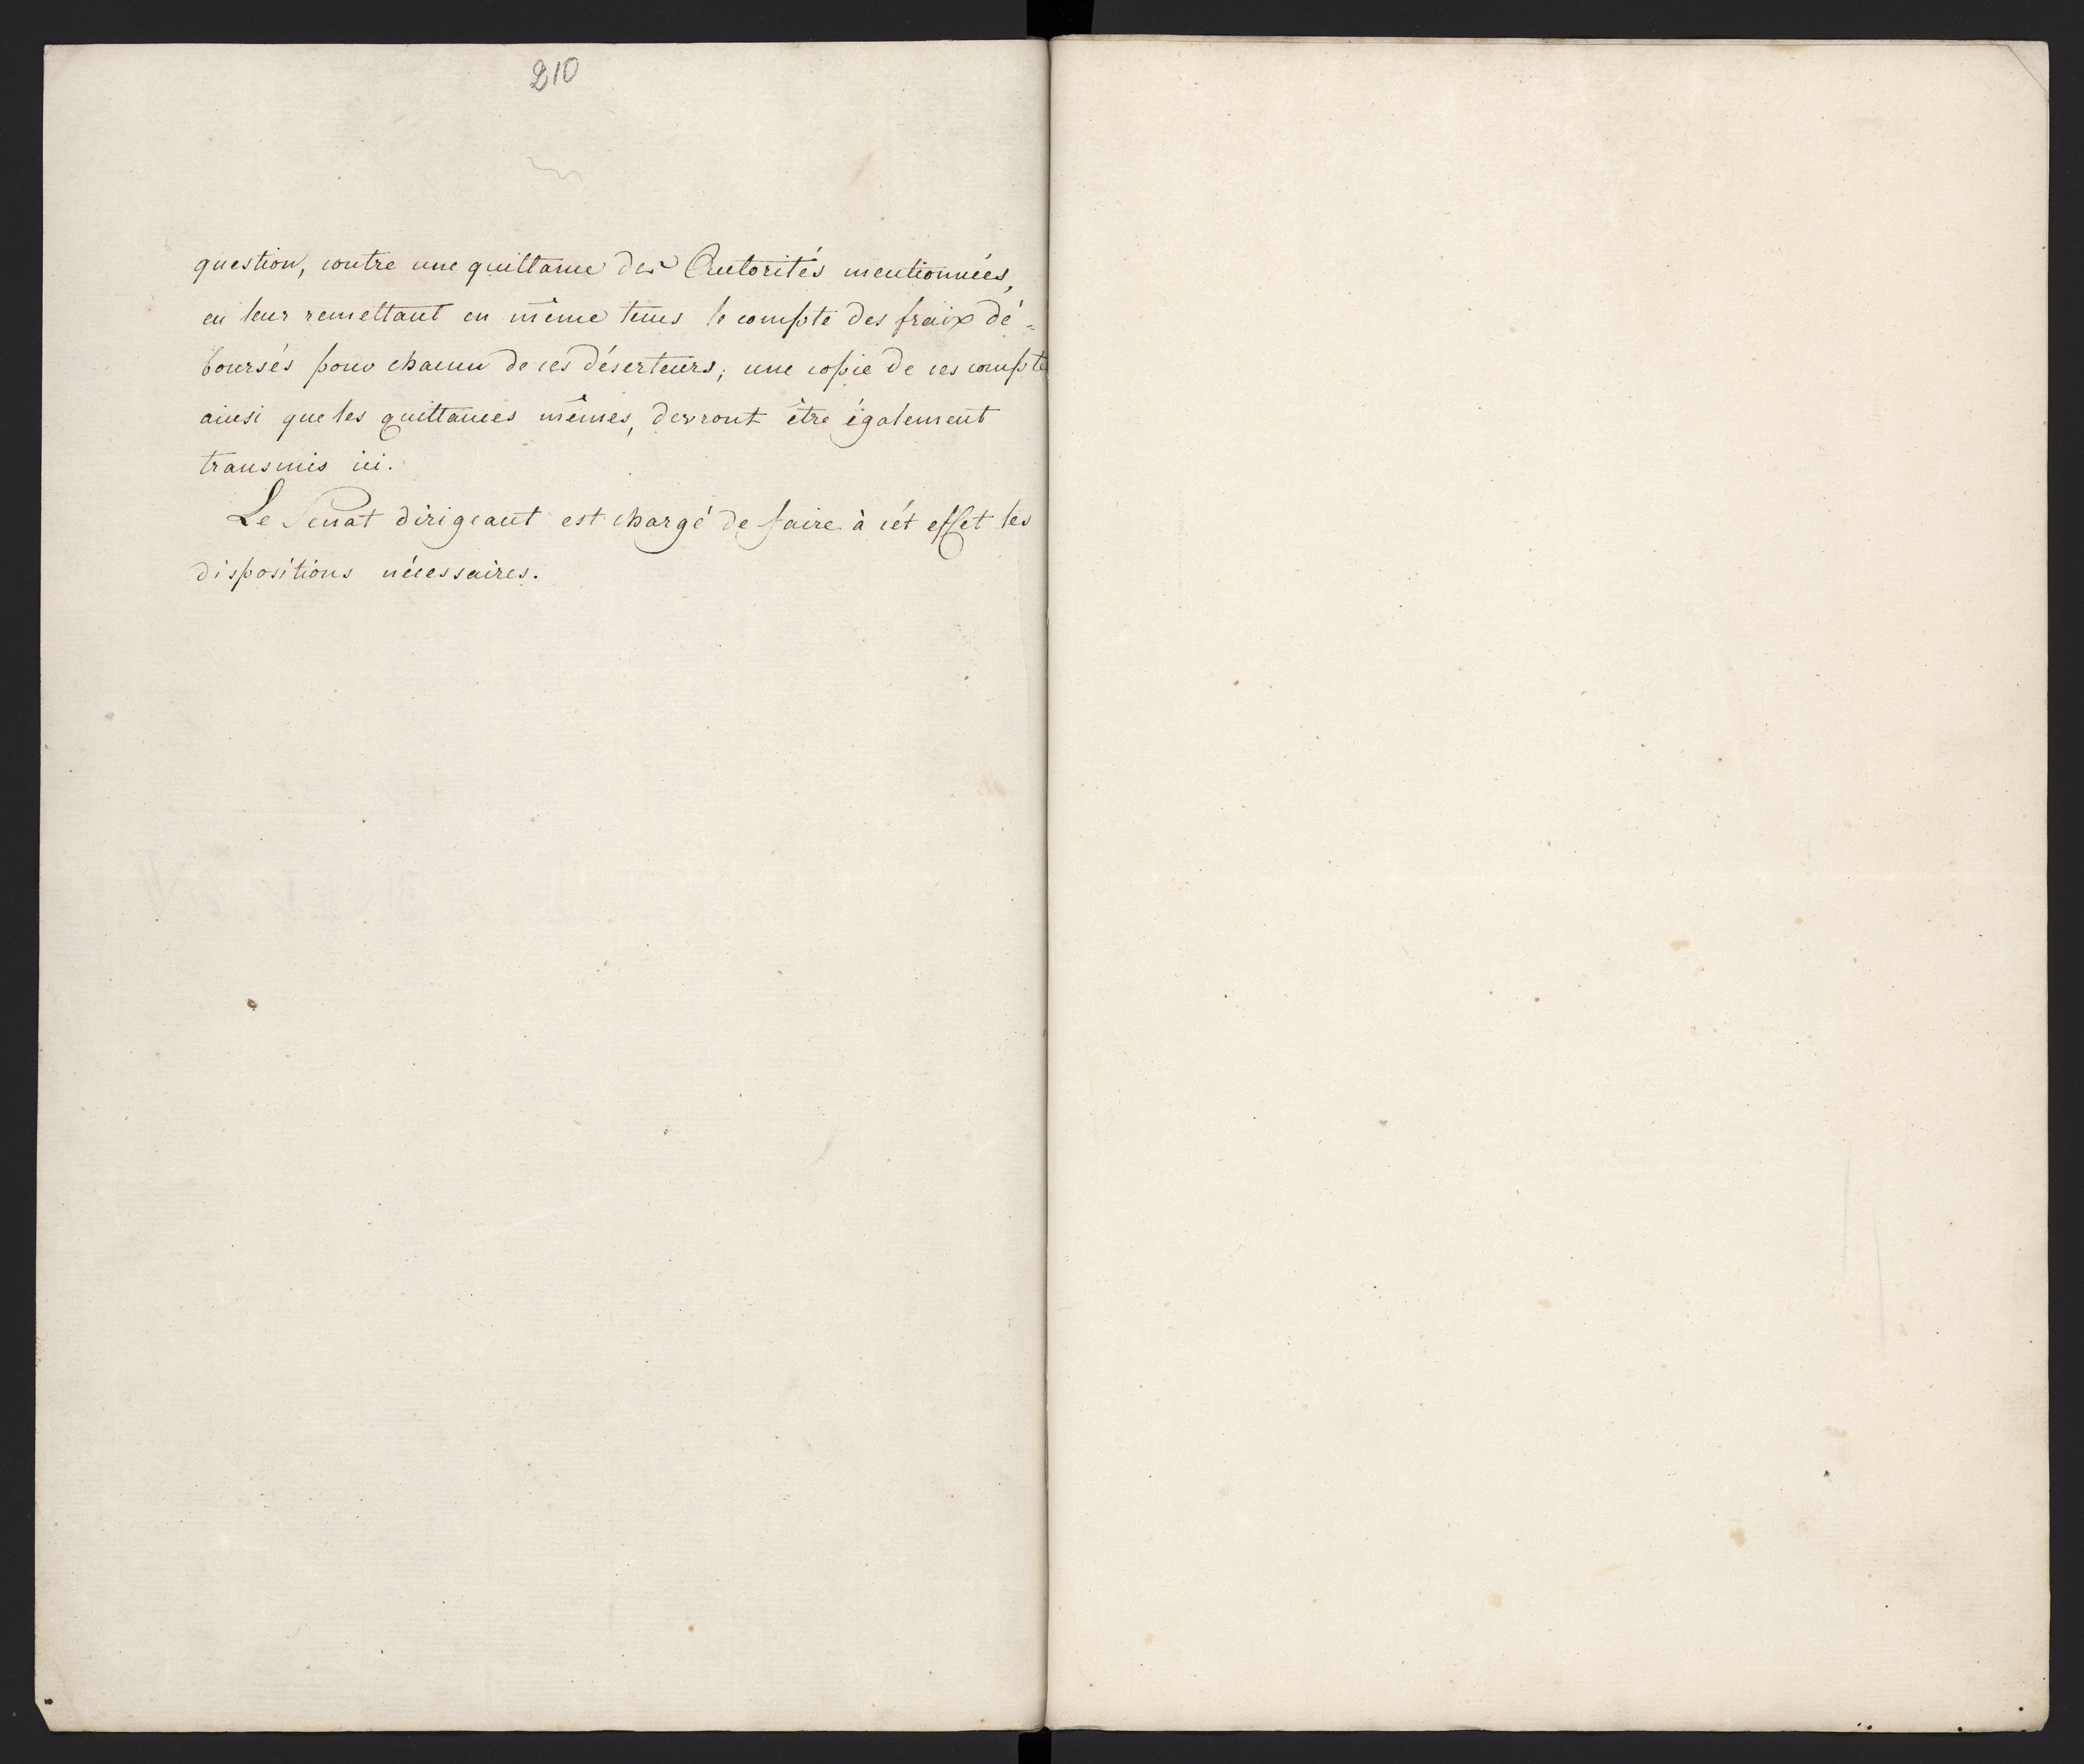 210
question, contre une quittance des Autorités mentionnées,
en leur remettant en même tems le compte des fraix dé=
boursés pour chacun de ces déserteurs; une copie de ces compte
ainsi que les quittances mêmes, devront être également
transmis ici.
Le Senat dirigeant est chargé de faire à cét effet les
dispositions nécessaires.